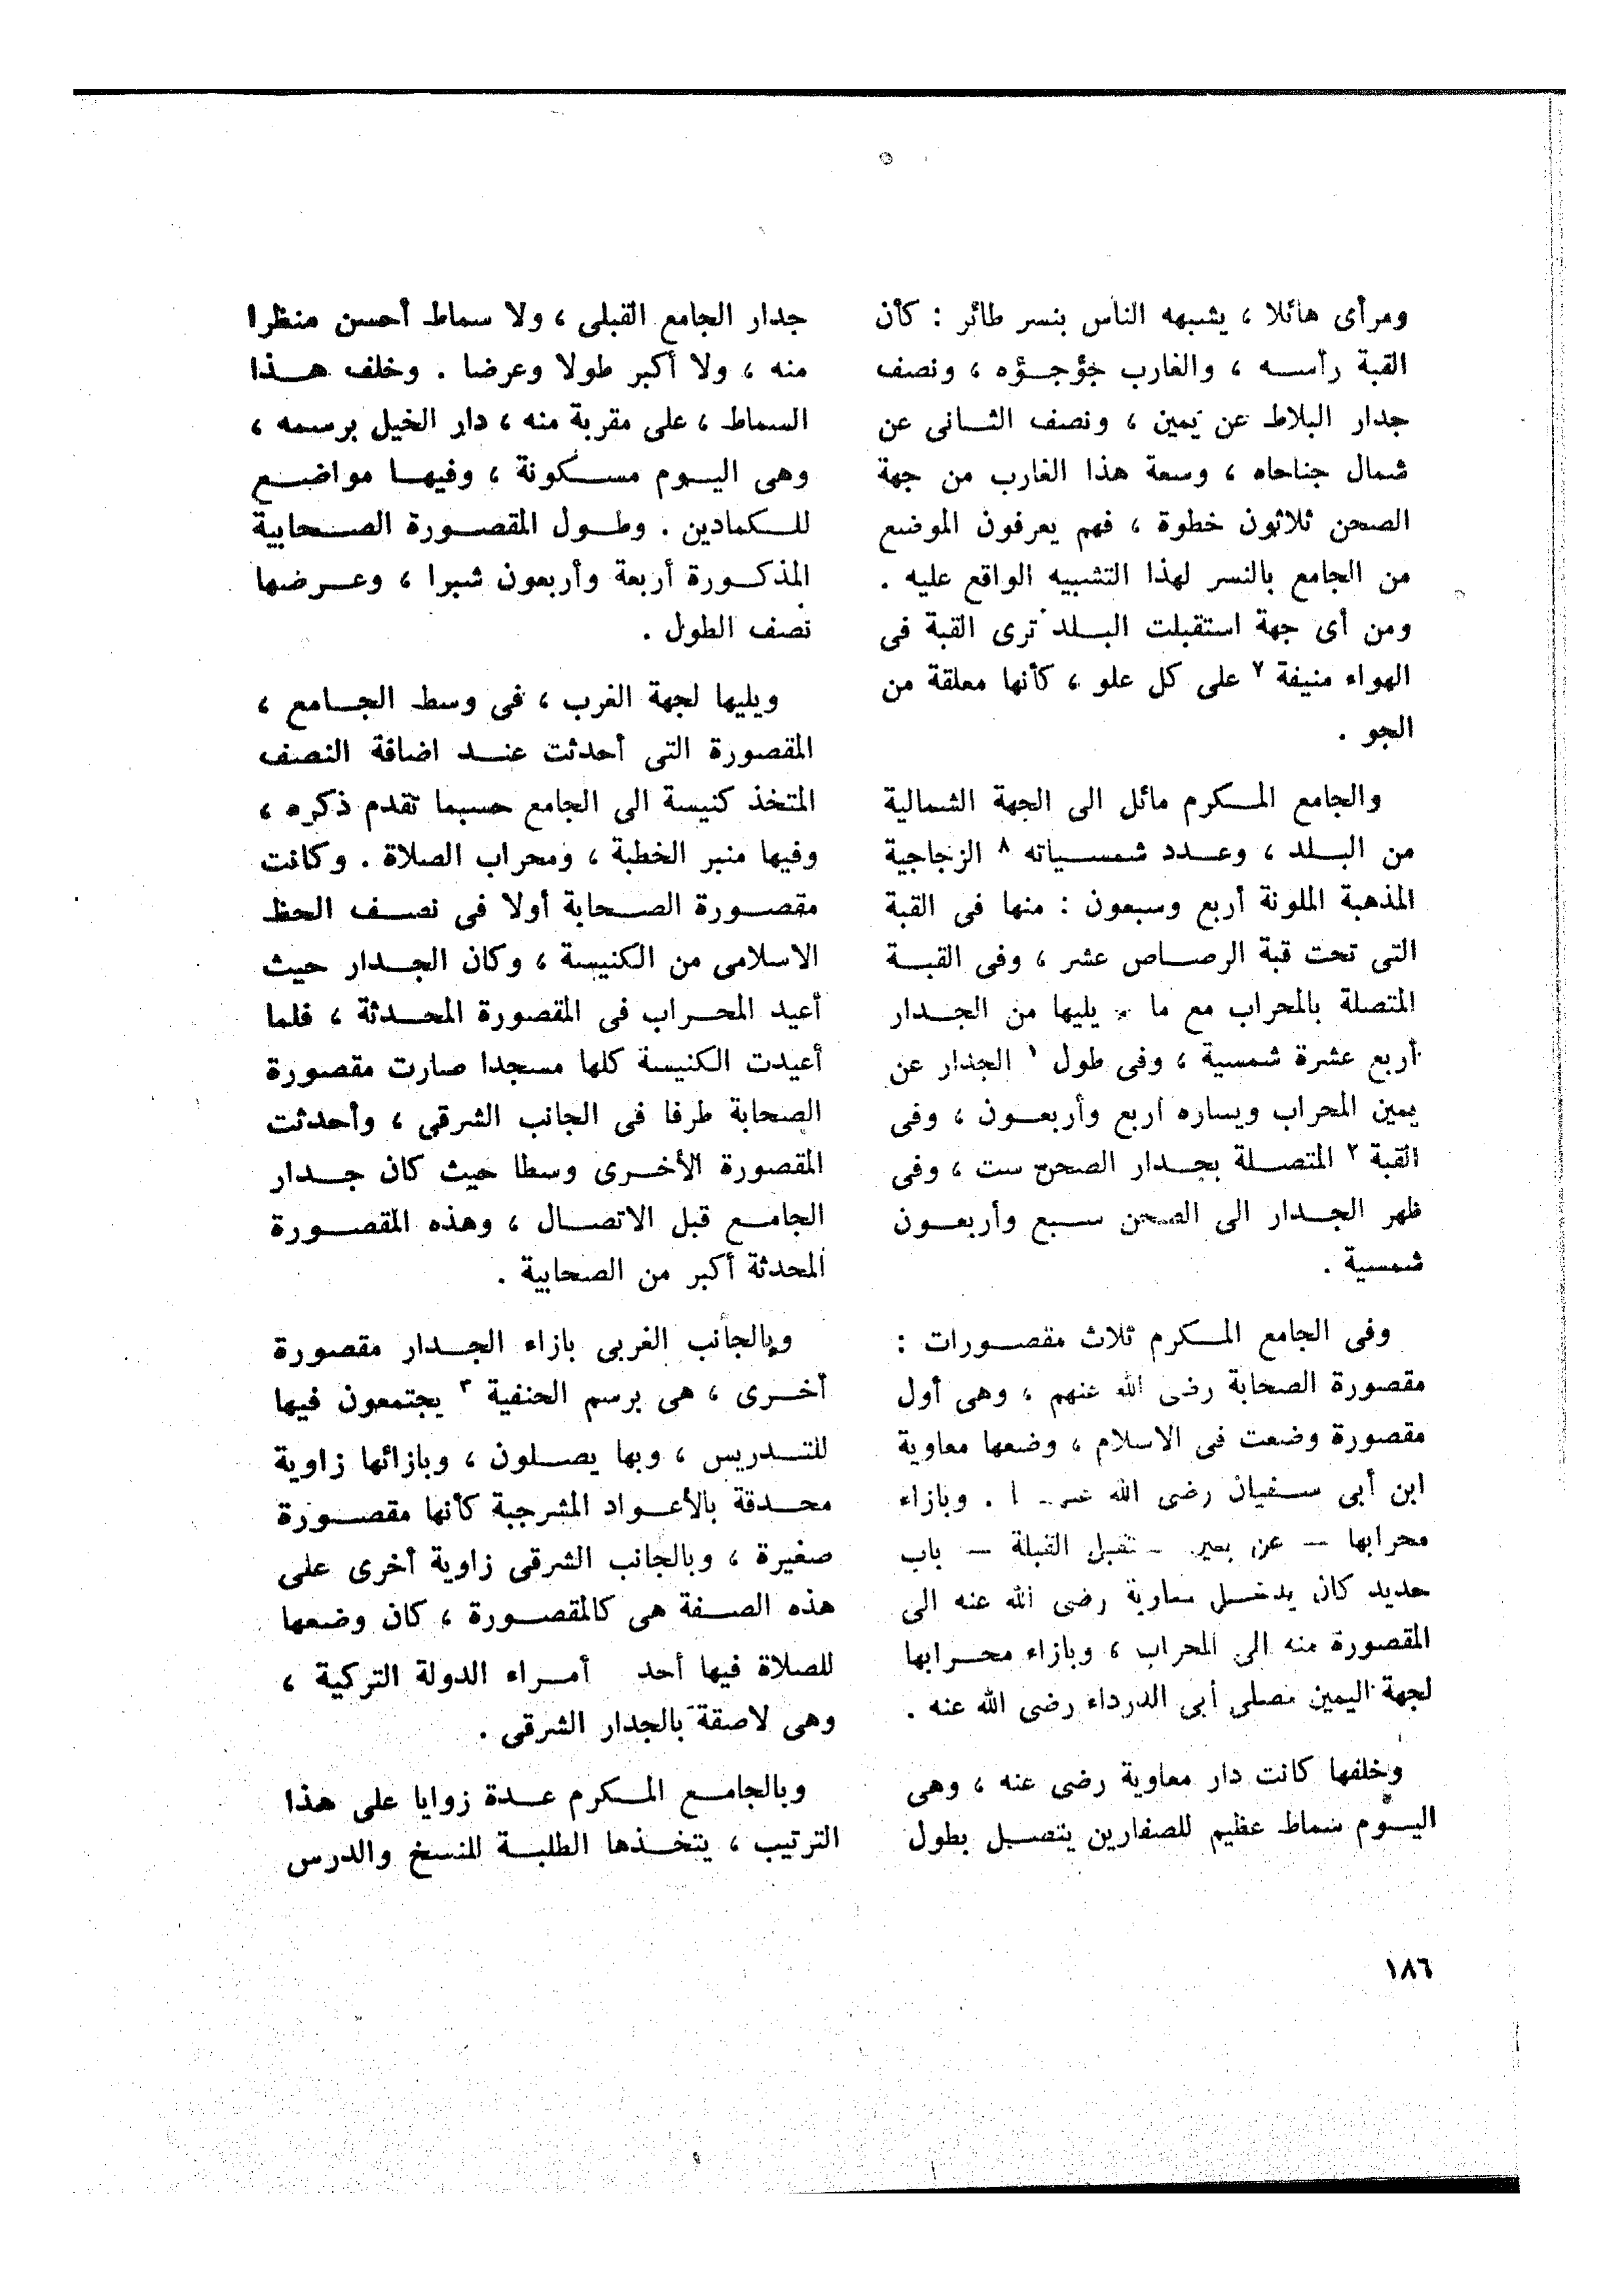 ومرأى هائلا ، يشبهه الناس بنسر طائر : كأن
القبة رأسه ، والغارب جؤجؤه ، ونصف
جدار البلاط عن يمين ، ونصف الثانى عن
شمال جناحاه ، وسعة هذا الغارب من جهة
الصحن ثلاثون خطوة ، فهم يعرفون الموضع
من الجامع بالنسر لهذا التشبيه الواقع عليه .
ومن أى جهة استقبلت البلد ترى القبة فى
الهواء منيفة ٧ على كل علو ، كأنها معلقة من
الجو .
والجامع المكرم مائل الى الجهة الشمالية
من البلد ، وعدد شمسياته ٨ الزجاجية
المذهبة الملونة أربع وسبعون : منها فى القبة
التى تحت قبة الرصاص عشر ، وفى القبة
المتصلة بالمحراب مع ما * يليها من الجدار
أربع عشرة شمسية ، وفى طول ١ الجدار عن
يمين المحراب ويساره أربع وأربعون ، وفى
القبة ٢ المتصلة بجدار الصحن ست ، وفى
ظهر الجدار الى الصحن سبع وأربعون
شمسية .
وفى الجامع المكرم ثلاث مقصورات :
مقصورة الصحابة رضى الله عنهم ، وهى أول
مقصورة وضعت فى الاسلام ، وضعها معاوية
ابن أبى سفيان رضى الله . وبازاء
محرابها — عن القبلة — باب
حديد كان يدخل معاوية رضى الله عنه الى
المقصورة منه الى المحراب ، وبازاء محرابها
لجهة اليمين مصلى أبى الدرداء رضى الله عنه .
وخلفها كانت دار معاوية رضى عنه ، وهى
اليوم سماط عظيم للصفارين يتصل بطول
جدار الجامع القبلى ، ولا سماط أحسن منظرا
منه ، ولا أكبر طولا وعرضا . وخلف هذا
السماط ، على مقربة منه ، دار الخيل برسمه ،
وهى اليوم مسكونة ، وفيها مواضع
للكمادين . وطول المقصورة الصحابية
المذكورة أربعة وأربعون شبرا ، وعرضها
نصف الطول .
ويليها لجهة الغرب ، فى وسط الجامع ،
المقصورة التى أحدثت عند اضافة النصف
المتخذ كنيسة الى الجامع حسبما تقدم ذكره ،
وفيها منبر الخطبة ، ومحراب الصلاة . وكانت
مقصورة الصحابة أولا فى نصف الحظ
الاسلامى من الكنيسة ، وكان الجدار حيث
أعيد المحراب فى المقصورة المحدثة ، فلما
أعيدت الكنيسة كلها مسجدا صارت مقصورة
الصحابة طرفا فى الجانب الشرقى ، وأحدثت
المقصورة الأخرى وسطا حيث كان جدار
الجامع قبل الاتصال ، وهذه المقصورة
المحدثة أكبر من الصحابية .
وبالجانب الغربى بازاء الجدار مقصورة
أخرى ، هى برسم الحنفية ٣ يجتمعون فيها
للتدريس ، وبها يصلون ، وبازائها زاوية
محدقة بالأعواد المشرجبة كأنها مقصورة
صغيرة ، وبالجانب الشرقى زاوية أخرى على
هذه الصفة هى كالمقصورة ، كان وضعها
للصلاة فيها أحد أمراء الدولة التركية ،
وهى لاصقة بالجدار الشرقى .
وبالجامع المكرم عدة زوايا على هذا
الترتيب ، يتخذها الطلبة للنسخ والدرس
١٨٦